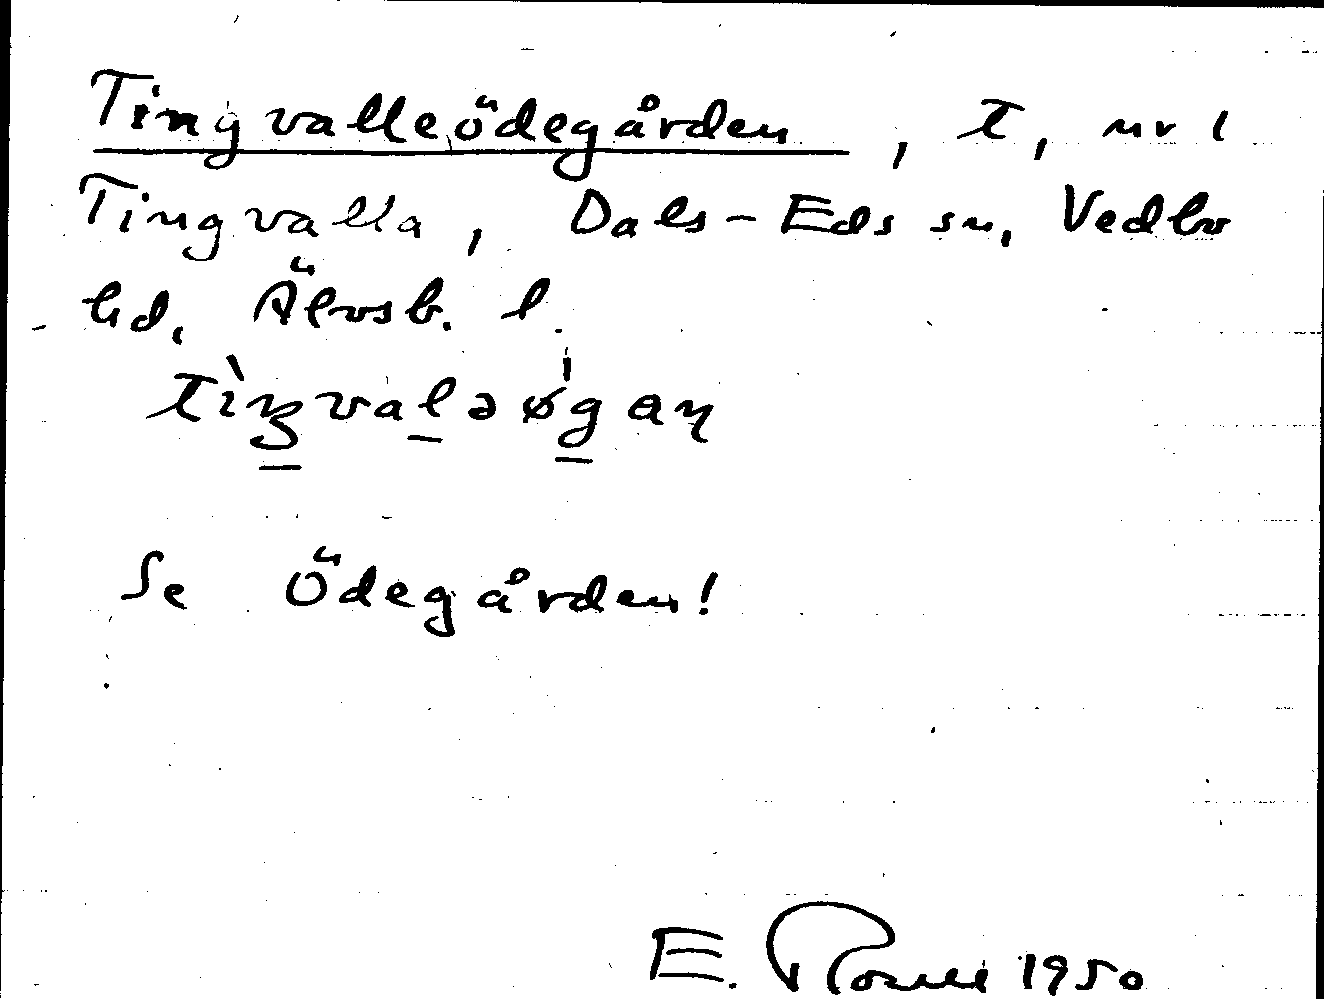 Tingvalleödegården, t, nr 1
Tingvalla, Dals-Eds sn, Vedbo
hd, Älvsb. l.
Se Ödegården!
E. 1950